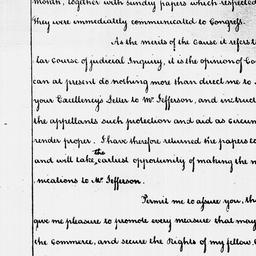 month, together with sundry papers which respected
they were immediately communicated to Congress.
As the merits of the Cause it refers t
lar Course of judicial Inquiry, it is the opinion of Co
can at present do nothing more than direct me to
your Excellency's Letter to Mr. Jefferson, and instruct
the appellants such protection and aid as circum
render proper. I have therefore returned the papers to
and will take the earliest opportunity of making the n
nications to Mr. Jefferson.
Permit me to assure you, th
give me pleasure to promote every measure that may
the Commerce, and secure the Rights of my fellow C